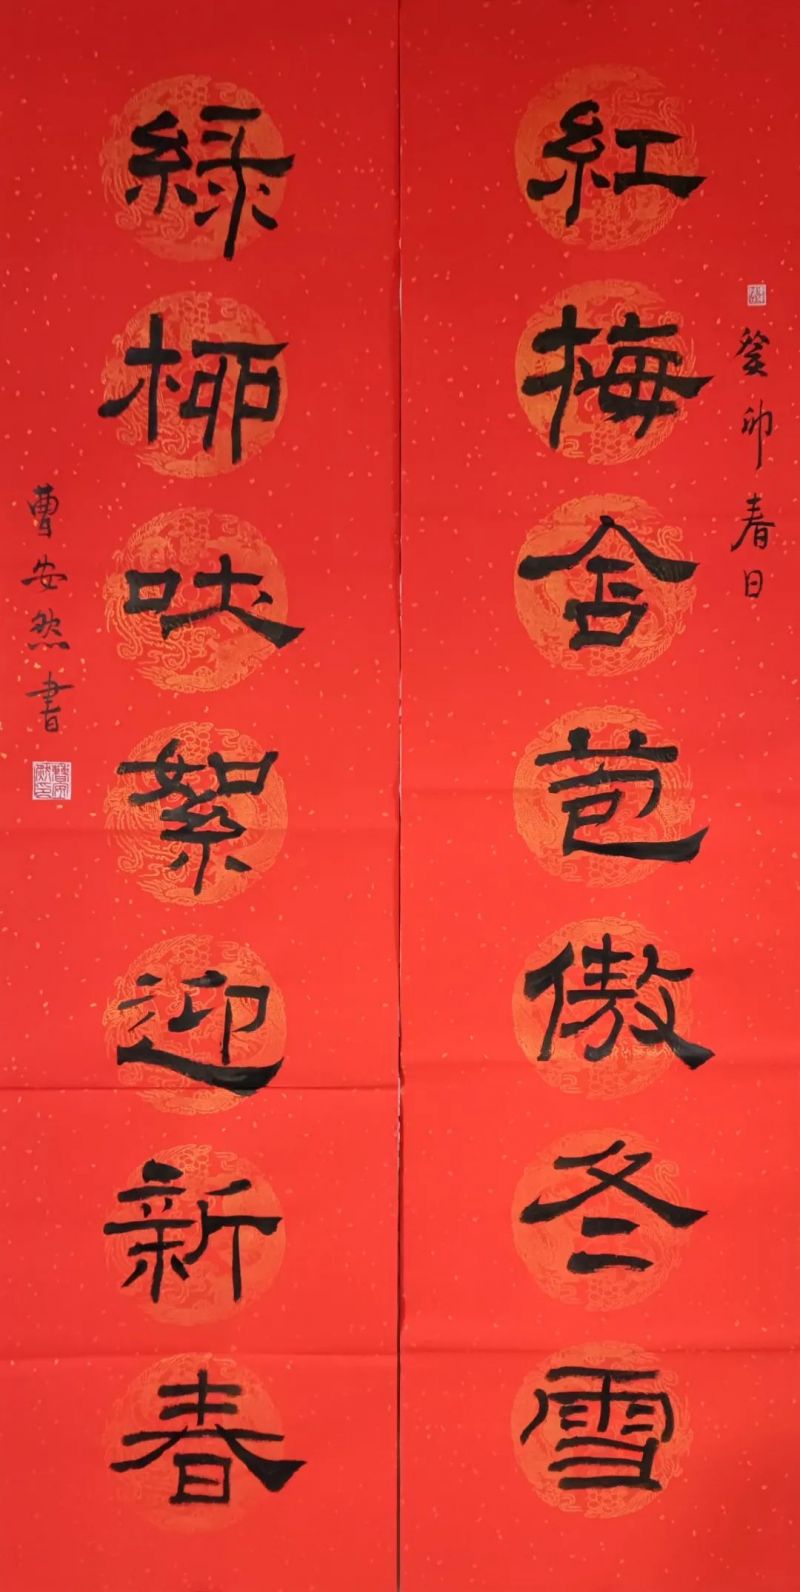 紅梅含苞傲冬雪
癸卯春日
綠柳吐絮迎新春
曹安然書